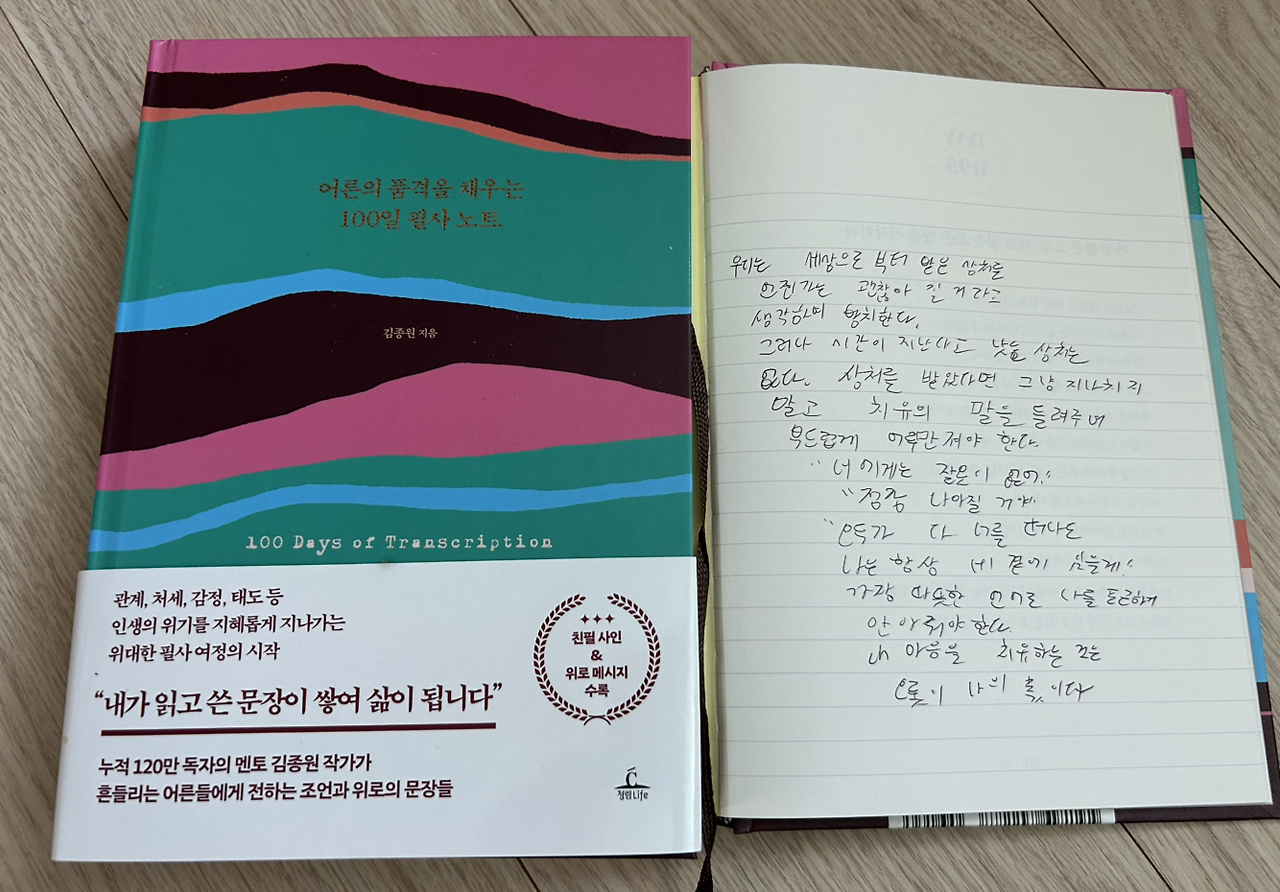 어른의 품격을 채우는
100일 필사 노트
김종원 지음
100 Days of Transcription
관계, 처세, 감정, 태도 등
인생의 위기를 지혜롭게 지나가는
위대한 필사 여정의 시작
“내가 읽고 쓴 문장이 쌓여 삶이 됩니다”
누적 120만 독자의 멘토 김종원 작가가
흔들리는 어른들에게 전하는 조언과 위로의 문장들
친필 사인
&
위로 메시지
수록
청림Life
우리는 세상으로 부터 받은 상처를
언젠가는 괜찮아 질 거라고
생각하며 방치한다.
그러나 시간이 지난다고 낫는 상처는
없다. 상처를 받았다면 그냥 지나치지
말고 치유의 말을 들려주며
부드럽게 어루만져야 한다.
"너에게는 잘못이 없어."
"점점 나아질 거야"
"모두가 다 너를 떠나도
나는 항상 네 곁에 있을게."
가장 따뜻한 언어로 나를 든든하게
안아줘야 한다.
내 마음을 치유하는 것은
오롯이 나의 몫이다